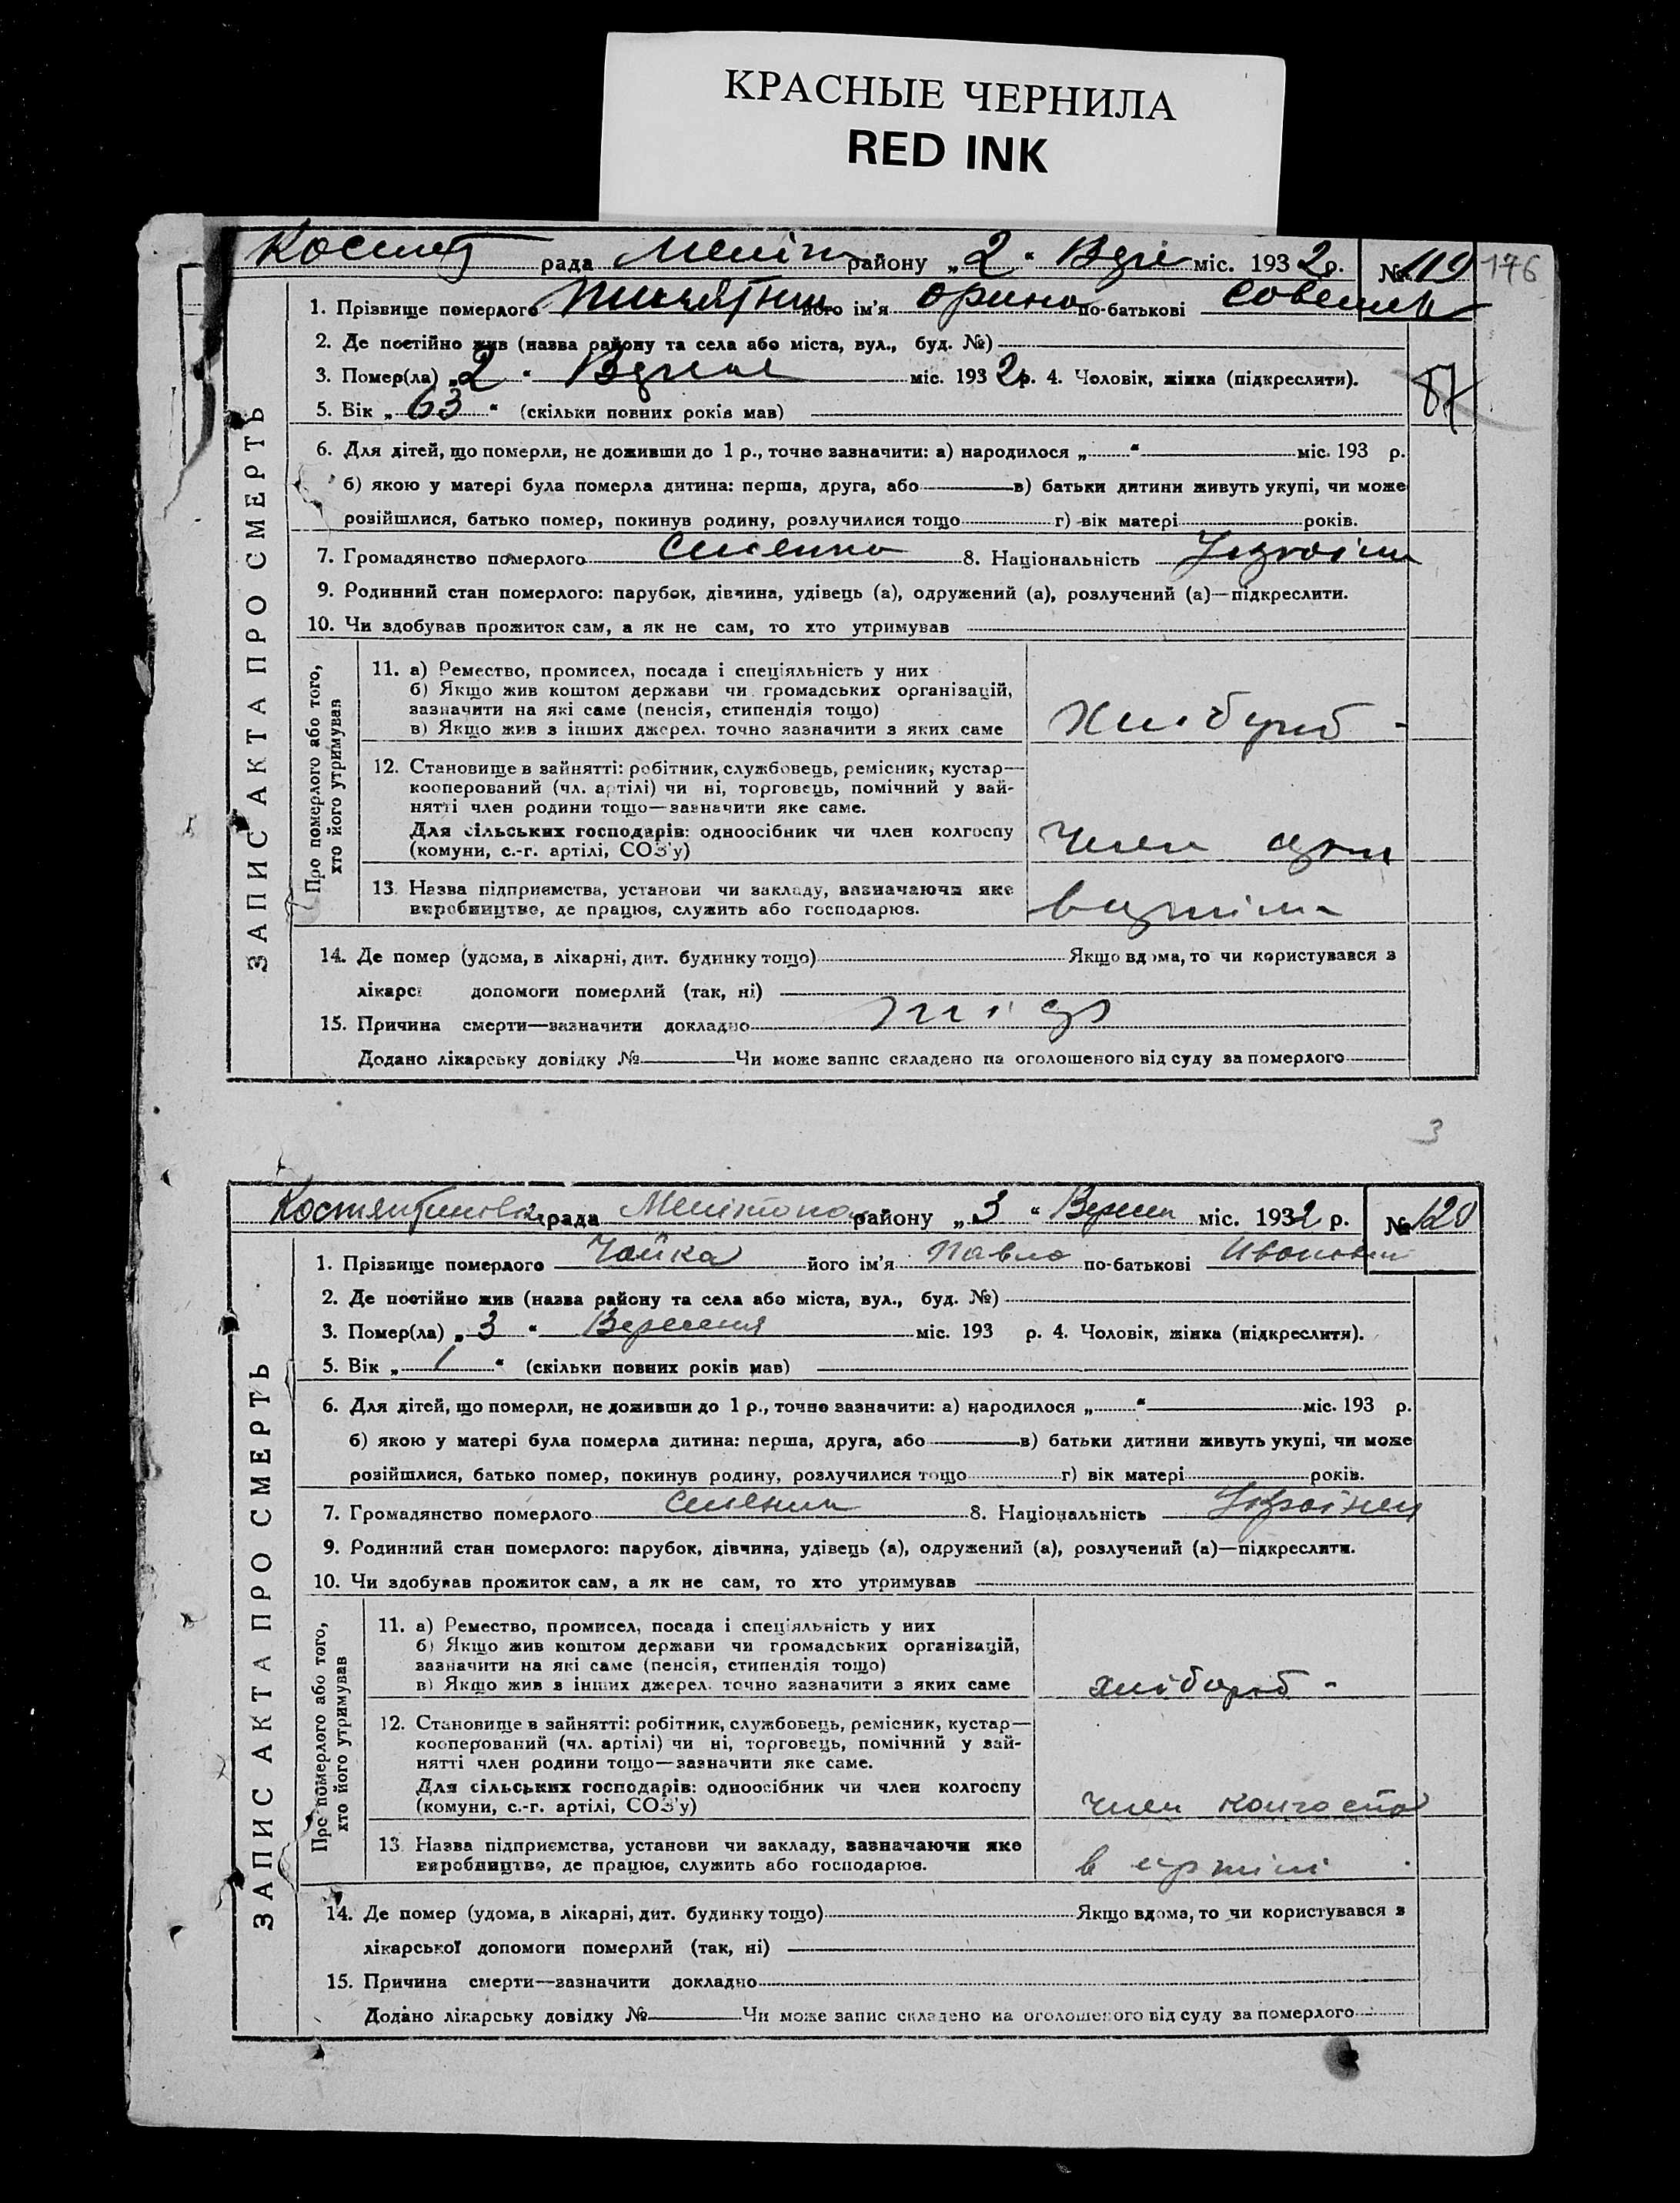 КРАСНЫЕ ЧЕРНИЛА
RED INK
рада району „2“ міс. 1932р. № 119 176
1. Прізвище померлого його ім'я Орина по-батькові
2. Де постійно жив (назва району та села або міста, вул., буд. №)
3. Помер(ла) „2“ міс. 1932р. 4. Чоловік, жінка (підкреслити).
5. Вік „63“ (скільки повних років мав)
6. Для дітей, що померли, не доживши до 1 р., точно зазначити: а) народилося „ “ міс. 193 р.
б) якою у матері була померла дитина: перша, друга, або в) батьки дитини живуть укупі, чи може
розійшлися, батько помер, покинув родину, розлучилися тощо г) вік матері років.
7. Громадянство померлого 8. Національність
9. Родинний стан померлого: парубок, дівчина, удівець (а), одружений (а), розлучений (а)—підкреслити.
10. Чи здобував прожиток сам, а як не сам, то хто утримував
ЗАПИС АКТА ПРО СМЕРТЬ
Про померлого або того,
хто його утримував
11. а) Ремество, промисел, посада і спеціяльність у них
б) Якщо жив коштом держави чи громадських організацій,
зазначити на які саме (пенсія, стипендія тощо)
в) Якщо жив з інших джерел. точно зазначити з яких саме
12. Становище в зайнятті: робітник, службовець, ремісник, кустар—
кооперований (чл. артілі) чи ні, торговець, помічний у зай-
нятті член родини тощо—зазначити яке саме.
Для сільських господарів: одноосібник чи член колгоспу
(комуни, с.-г. артілі, СОЗ'у)
член
13. Назва підприємства, установи чи закладу, зазначаючи яке
виробництво, де працює, служить або господарює.
14. Де помер (удома, в лікарні, дит. будинку тощо) Якщо вдома, то чи користувався з
лікарсі допомоги померлий (так, ні)
15. Причина смерти—зазначити докладно
Додано лікарську довідку № Чи може запис складено на оголошеного від суду за померлого
3
рада району „3“ міс. 1932 р. № 120
1. Прізвище померлого Чайка його ім'я Павло по-батькові
2. Де постійно жив (назва району та села або міста, вул., буд. №)
3. Помер(ла) „3“ Вересня міс. 193 р. 4. Чоловік, жінка (підкреслити).
5. Вік „1“ (скільки повних років мав)
6. Для дітей, що померли, не доживши до 1 р., точно зазначити: а) народилося „ “ міс. 193 р.
б) якою у матері була померла дитина: перша, друга, або в) батьки дитини живуть укупі, чи може
розійшлися, батько помер, покинув родину, розлучилися тощо г) вік матері років.
7. Громадянство померлого 8. Національність
9. Родинний стан померлого: парубок, дівчина, удівець (а), одружений (а), розлучений (а)—підкреслити.
10. Чи здобував прожиток сам, а як не сам, то хто утримував
ЗАПИС АКТА ПРО СМЕРТЬ
Про померлого або того,
хто його утримував
11. а) Ремество, промисел, посада і спеціяльність у них
б) Якщо жив коштом держави чи громадських організацій,
зазначити на які саме (пенсія, стипендія тощо)
в) Якщо жив з інших джерел. точно зазначити з яких саме
12. Становище в зайнятті: робітник, службовець, ремісник, кустар—
кооперований (чл. артілі) чи ні, торговець, помічний у зай-
нятті член родини тощо—зазначити яке саме.
Для сільських господарів: одноосібник чи член колгоспу
(комуни, с.-г. артілі, СОЗ'у)
член колгоспа
13. Назва підприємства, установи чи закладу, зазначаючи яке
виробництво, де працює, служить або господарює.
в артілі
14. Де помер (удома, в лікарні, дит. будинку тощо) Якщо вдома, то чи користувався з
лікарської допомоги померлий (так, ні)
15. Причина смерти—зазначити докладно
Додано лікарську довідку № Чи може запис складено на оголошеного від суду за померлого